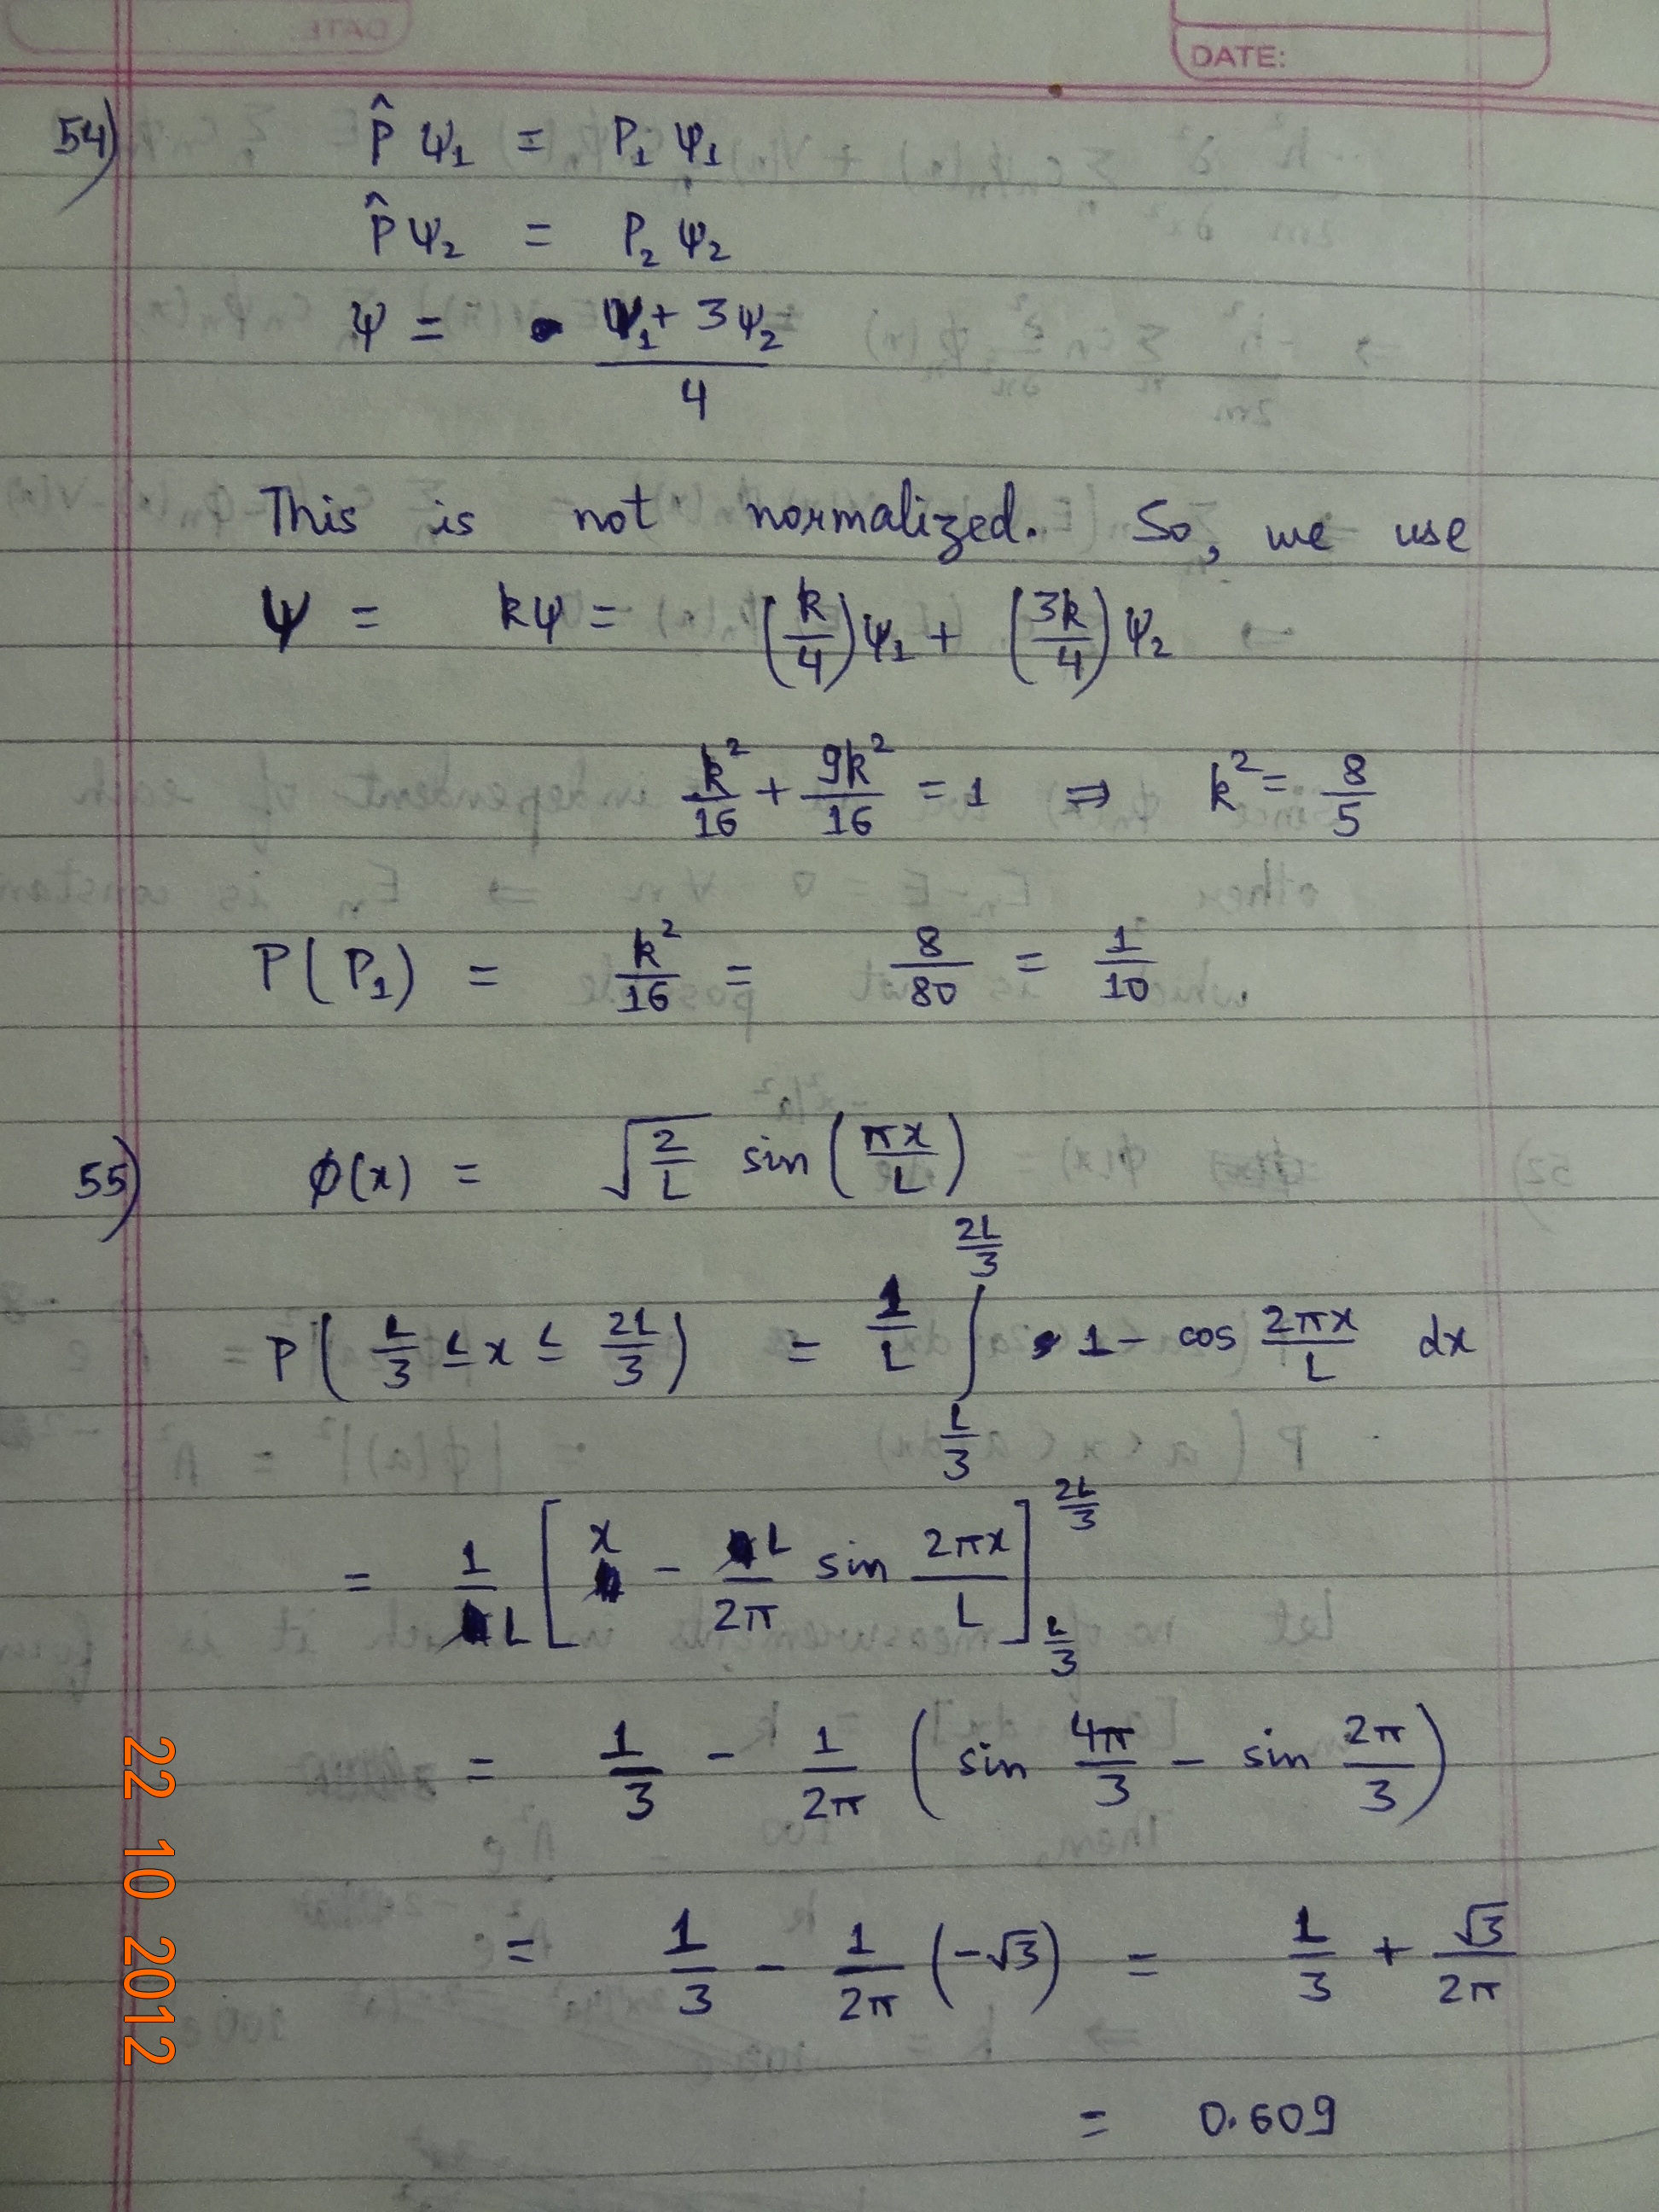 DATE:
54) P̂ ψ₁ = P₁ ψ₁
P̂ ψ₂ = P₂ ψ₂
ψ = (ψ₁ + 3ψ₂)/4
This is not normalized. So, we use
Ψ = kψ = (k/4) ψ₁ + (3k/4) ψ₂
k²/16 + 9k²/16 = 1 ⇒ k² = 8/5
P(P₁) = k²/16 = 8/80 = 1/10
55) φ(x) = √(2/L) sin(πx/L)
P(L/3 ≤ x ≤ 2L/3) = 1/L ∫_{L/3}^{2L/3} 1 - cos 2πx/L dx
= 1/L [x - L/2π sin 2πx/L]_{L/3}^{2L/3}
= 1/3 - 1/2π (sin 4π/3 - sin 2π/3)
= 1/3 - 1/2π (-√3) = 1/3 + √3/2π
= 0.609
22 10 2012